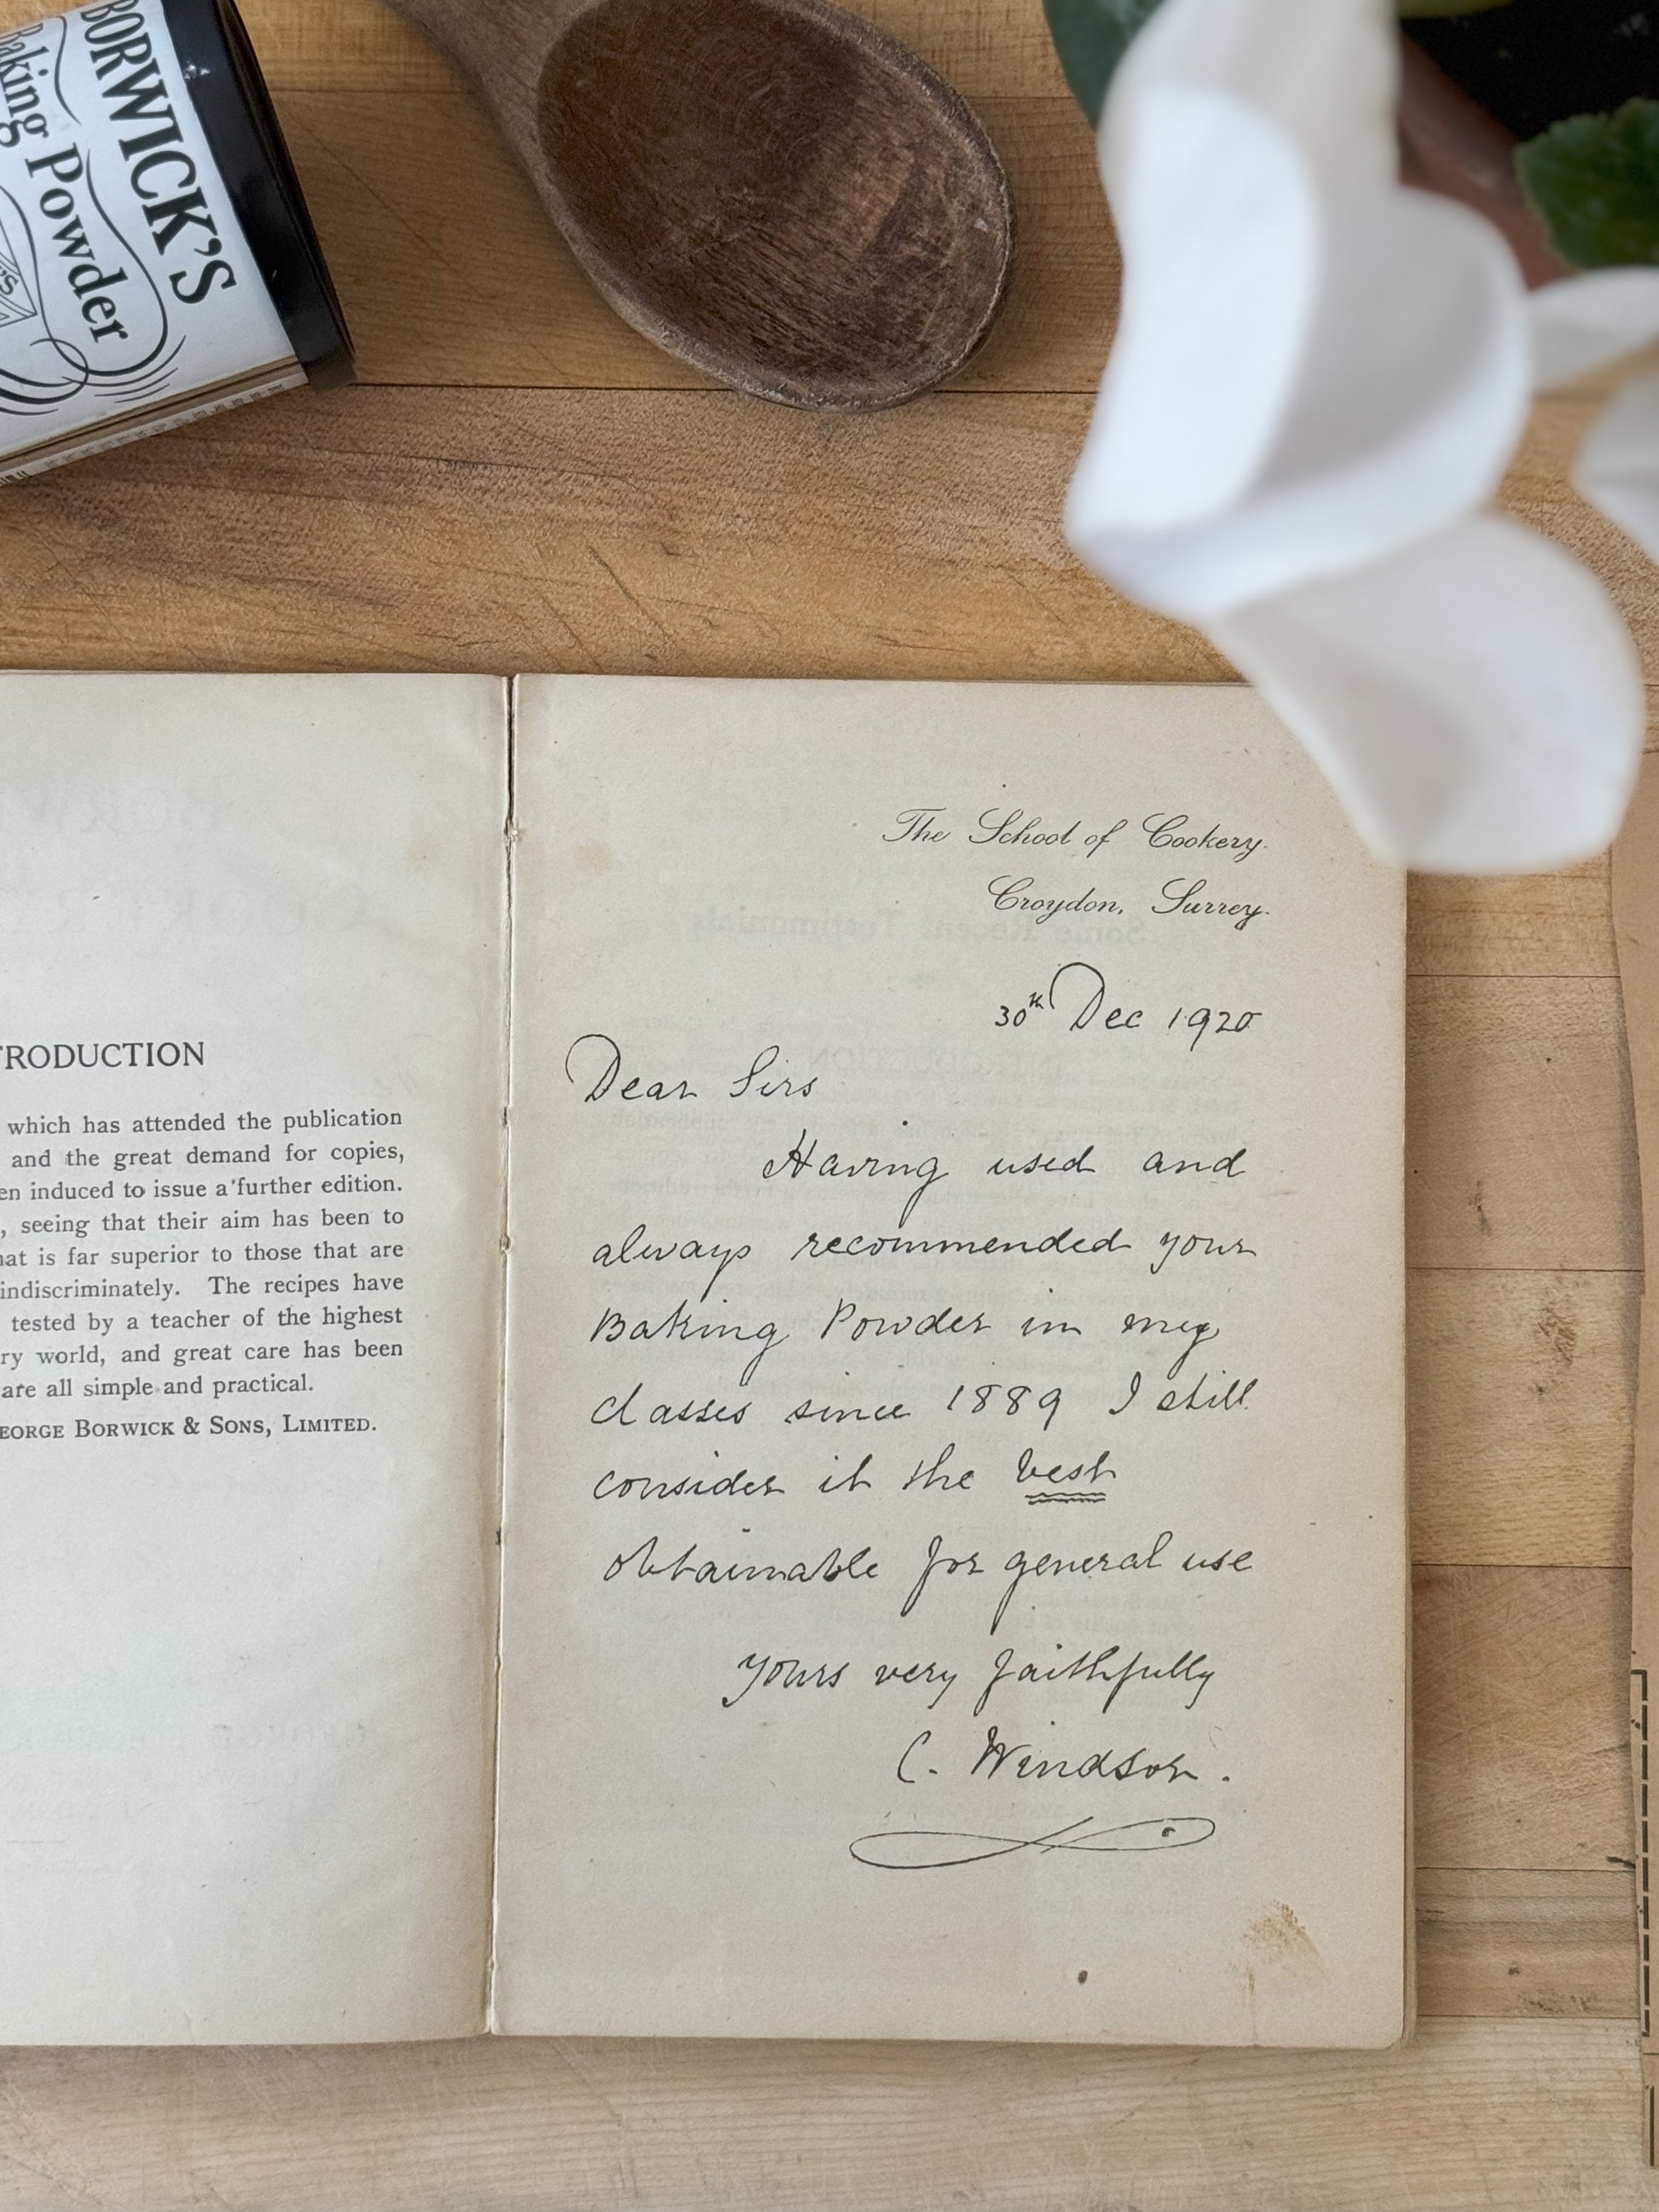 BORWICK'S
Baking Powder
TRODUCTION
which has attended the publication
and the great demand for copies,
en induced to issue a further edition.
, seeing that their aim has been to
hat is far superior to those that are
indiscriminately. The recipes have
tested by a teacher of the highest
ry world, and great care has been
are all simple and practical.
EORGE BORWICK & SONS, LIMITED.
The School of Cookery.
Croydon, Surrey.
30th Dec 1920
Dear Sirs
Having used and
always recommended your
Baking Powder in my
classes since 1889 I still
consider it the best
obtainable for general use
Yours very faithfully
C. Windsor.
Some Recent Testimonials